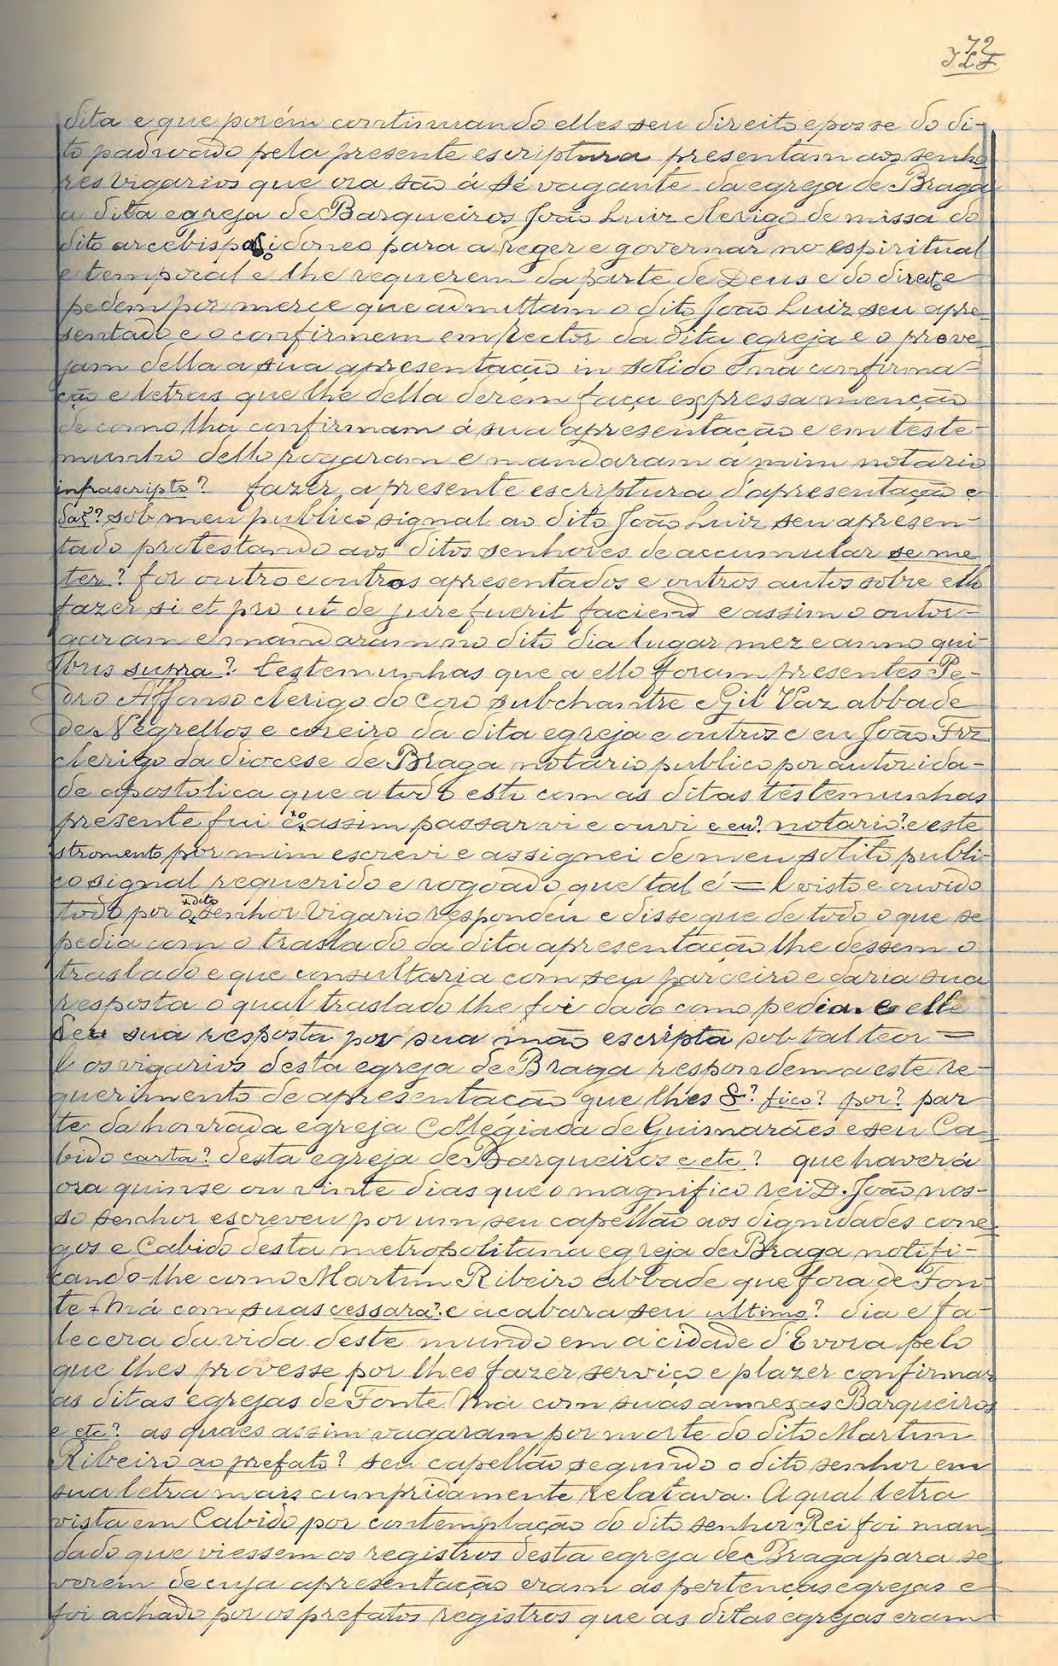 72
dita e que porém continuando elles seu direito e posse do di-
to padroado pela presente escriptura presentam aos senho
res vigarios que ora são á sé vagante da egreja de Braga
a dita egreja de Barqueiros João Luiz clerigo de missa do
dito arcebispado idoneo para a reger e governar no espiritual
e temporal e lhe requerem da parte de Deus e do direito e
pedem por merçe que admittam o dito João Luiz seu apre-
sentado e o confirmem em Rector da dita egreja e o prove-
jam della a sua apresentação in solido e na confirma-
ção e letras que lhe della derem faça expressa menção
de como lha confirmam á sua apresentação e em teste-
munho dello rogaram e mandaram a mim notario
infrascripto? fazer a presente escriptura d'apresentação e
daz? sob meu publico signal ao dito João Luiz seu apresen-
tado protestando aos ditos senhores de accumular se me
ter? for outro e outros apresentados e outros autos sobre ello
fazer si et pro ut de jure fuerit faciend e assim o outor-
garam e mandaram no dito dia lugar mez e anno qui-
bus supra? testemunhas que a ello foram presentes Pe-
dro Affonso clerigo do coro subchantre e Gil Vaz abbade
de Negrellos e coreiro da dita egreja e outros e eu João Frz
clerigo da diocese de Braga notario publico por autorida-
de apostolica que a todo esto com as ditas testemunhas
presente fui e assim passar vi e ouvi e eu? notario? e este
stromento por mim escrevi e assignei de meu solito publi-
co signal requerido e rogado que tal é = E visto e ouvido
todo por o dito senhor Vigario respondeu e disse que de todo o que se
pedia com o traslado da dita apresentação lhe dessem o
traslado e que consultaria com seu parceiro e daria sua
resposta o qual traslado lhe foi dado como pedia. e elle
deu sua resposta por sua mão escripta sob tal teor =
E os vigarios desta egreja de Braga respondem a este re-
querimento de apresentacao que lhes S? fico? por? par
te da honrada egreja Collegiada de Guimarães e seu Ca-
bido carta? desta egreja de Barqueiros e etc? que haverá
ora quinse ou vinte dias que o magnifico rei D. João nos-
so senhor escreveu por um seu capellão aos dignidades cone-
gos e Cabido desta metropolitana egreja de Braga notifi-
cando-lhe como Martim Ribeiro abbade que fora de Fon-
te Má com suas cessara? e acabara seu ultimo? dia e fa-
lecera da vida deste mundo em a cidade d'Evora pelo
que lhes provesse por lhes fazer serviço e plazer confirmar
as ditas egrejas de Fonte Má com suas annexas Barqueiros
e etc? as quaes assim vagaram por morte do dito Martim
Ribeiro ao prefato? seu capellão segundo o dito senhor em
sua letra mais cumpridamente relatava. A qual letra
vista em Cabido por contemplação do dito senhor Rei foi man-
dado que viessem os registros desta egreja de Braga para se
verem de cuja apresentação eram as pertenças egrejas e
foi achado por os prefatos registros que as ditas egrejas eram